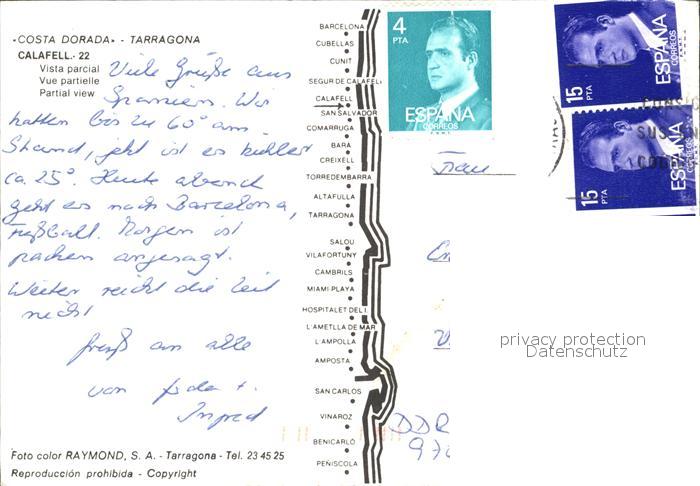 «COSTA DORADA» - TARRAGONA
CALAFELL.- 22
Vista parcial
Vue partielle
Partial view
Viele Grüße aus
Spanien. Wir
hatten bis zu 60° am
Strand, jetzt ist es kühler
ca. 25°. Heute abend
geht es nach Barcelona,
Fußball. Morgen ist
packen angesagt.
Weiter reicht die Zeit
nicht
Gruß an alle
von
Ingrid
Foto color RAYMOND, S. A. - Tarragona - Tel. 23 45 25
Reproducción prohibida - Copyright
BARCELONA
CUBELLAS
CUNIT
SEGUR DE CALAFELL
CALAFELL
SAN SALVADOR
COMARRUGA
BARA
CREIXELL
TORREDEMBARRA
ALTAFULLA
TARRAGONA
SALOU
VILAFORTUNY
CAMBRILS
MIAMI-PLAYA
HOSPITALET DEL I.
L'AMETLLA DE MAR
L'AMPOLLA
AMPOSTA
SAN CARLOS
VINAROZ
BENICARLÓ
PEÑISCOLA
4
PTA
ESPAÑA
CORREOS
15
PTA
ESPAÑA
CORREOS
15
PTA
ESPAÑA
CORREOS
Frau
DDR
privacy protection
Datenschutz